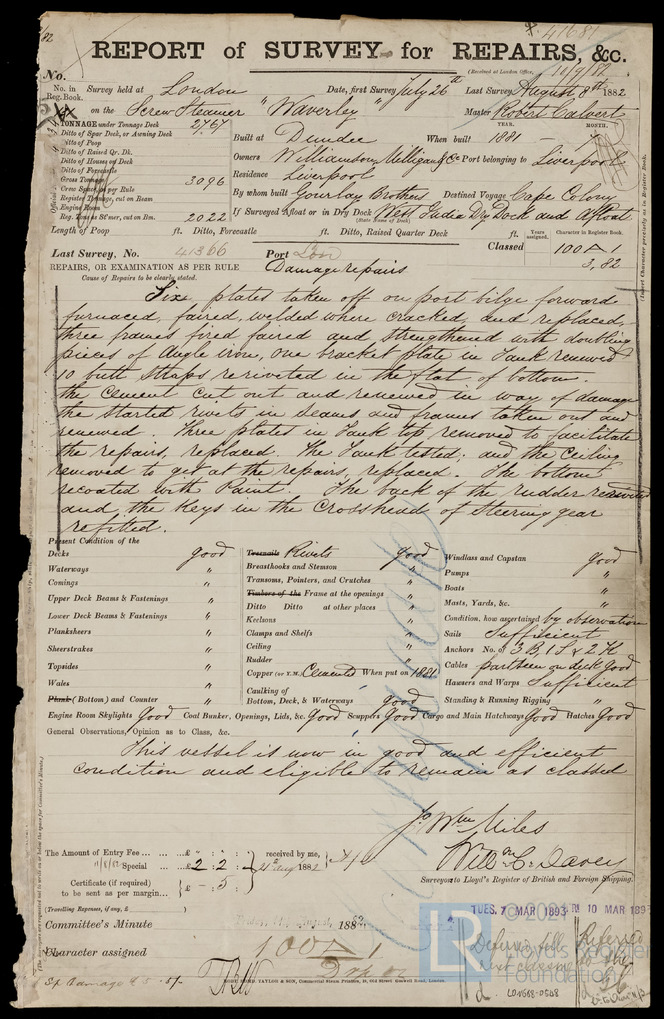 *41681
REPORT of SURVEY for REPAIRS, &c.
No.
(Received at London Office, 10/9/82
No. in Reg. Book. Survey held at London Date, first Survey July 26th Last Survey August 8th 1882
on the Screw Steamer "Waverley" Master Robert Calvert
TONNAGE under Tonnage Deck 2767
Ditto of Spar Deck, or Awning Deck
Ditto of Poop
Ditto of Raised Qr. Dk.
Ditto of Houses of Deck
Ditto of Forecastle
Gross Tonnage 3096
Crew Space, as per Rule
Register Tonnage, cut on Beam
Engine Room
Reg. Tons as St'mer, cut on Bm. 2022
Built at Dundee When built YEAR. 1881 MONTH. 7
Owners Williamson, Milligan & Co Port belonging to Liverpool
Residence Liverpool
By whom built Gourlay Brothers Destined Voyage Cape Colony
If Surveyed Afloat or in Dry Dock West India Dry Dock and Afloat
(State Name of Dock)
Length of Poop ft. Ditto, Forecastle ft. Ditto, Raised Quarter Deck ft.
Years assigned. Character in Register Book.
Classed 100 A 1
3,82
Last Survey, No. 41366 Port Lon
REPAIRS, OR EXAMINATION AS PER RULE Damage repairs
Cause of Repairs to be clearly stated.
Six plates taken off on port bilge forward
furnaced, faired, welded where cracked, and replaced,
three frames fired faired and strengthened with doubling
pieces of Angle iron, one bracket plate in Tank renewed
10 butt straps reriveted in the flat of bottom.
the Cement cut out and renewed in way of damage
the started rivets in seams and frames taken out and
renewed. Three plates in Tank top removed to facilitate
the repairs, replaced. The Tank tested; and the Ceiling
removed to get at the repairs, replaced. The bottom
recoated with Paint. The back of the rudder reriveted
and the Keys in the Crosshead of steering gear
refitted.
Present Condition of the
Decks good
Waterways "
Comings "
Upper Deck Beams & Fastenings "
Lower Deck Beams & Fastenings "
Planksheers "
Sheerstrakes "
Topsides "
Wales "
Plank (Bottom) and Counter "
Treenails Rivets good
Breasthooks and Stemson "
Transoms, Pointers, and Crutches "
Timbers of the Frame at the openings "
Ditto Ditto at other places "
Keelsons "
Clamps and Shelfs "
Ceiling "
Rudder "
Copper (or Y.M.) Cemented When put on 1881
Caulking of Bottom, Deck, & Waterways good
Windlass and Capstan good
Pumps "
Boats "
Masts, Yards, &c. "
Condition, how ascertained by observation
Sails Sufficient
Anchors No. of 3 B, 1 S & 2 K
Cables part seen on deck good
Hawsers and Warps Sufficient
Standing & Running Rigging "
Engine Room Skylights Good Coal Bunker, Openings, Lids, &c. Good Scuppers Good Cargo and Main Hatchways Good Hatches Good
General Observations, Opinion as to Class, &c.
This vessel is now in good and efficient
condition and eligible to remain as classed
Jo Wm Miles
Willm C. Davey
Surveyors to Lloyd's Register of British and Foreign Shipping.
The Amount of Entry Fee ... £ " : " :
Special ... £ 2 : 2 :
received by me,
21st Aug 1882
Certificate (if required) to be sent as per margin... £ - : 5 :
(Travelling Expenses, if any, £ )
Committee's Minute August, 1882.
Character assigned 100 A 1
TUES. 7 MAR 1893
FRI 10 MAR 1893
Deferred
Referred
© 2021
LR
Lloyd's Register
Foundation
LON568-0568
TAYLOR & SON, Commercial Steam Printers